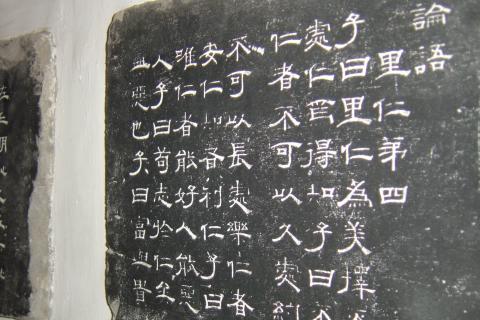 論語
里仁第四
子曰里仁為美擇
處仁焉得知子曰不
仁者不可以久處約
不可以長處樂仁者
安仁知者利仁子曰
唯仁者能好人能惡
人子曰苟志於仁矣
無惡也子曰富與貴